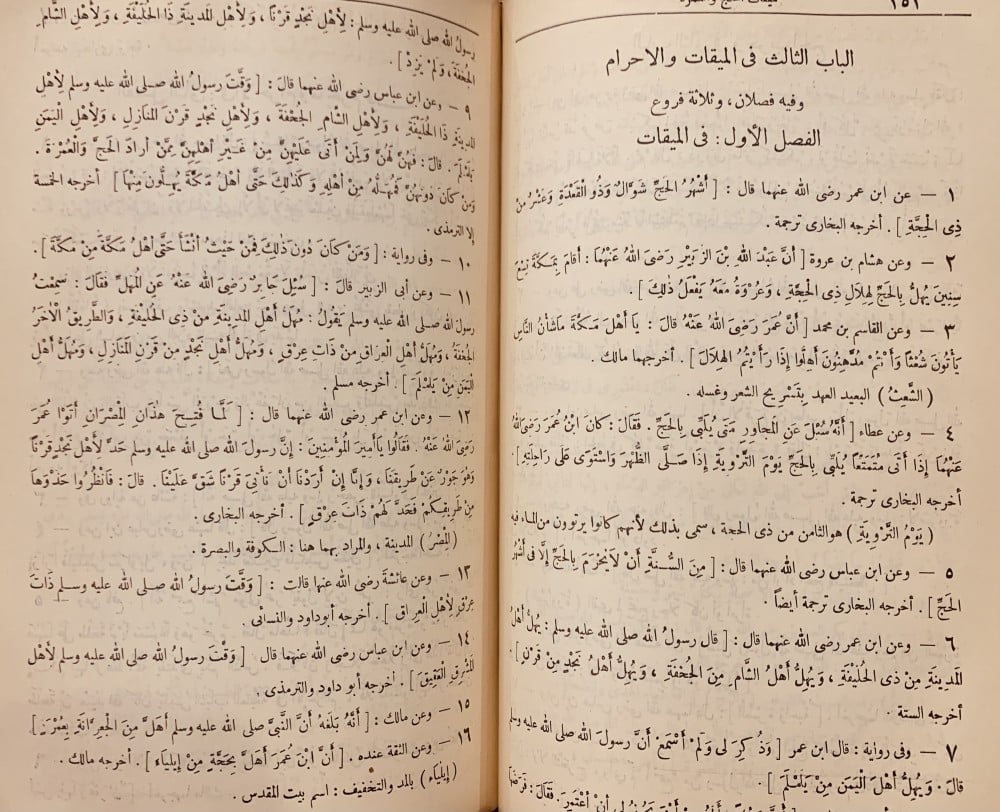 ١٥١
ميقات الحج والعمرة
الباب الثالث فى الميقات والاحرام
وفيه فصلان ، وثلاثة فروع
الفصل الأول : فى الميقات
١ — عن ابن عمر رضى الله عنهما قال : [ أَشْهُرُ الحَجِّ شَوَّالٌ وَذُو القَعْدَةِ وَعَشْرٌ مِنْ
ذِى الْحِجَّةِ ] . أخرجه البخارى ترجمة .
٢ — وعن هشام بن عروة [ أَنَّ عَبْدَ اللهِ بْنَ الزُّبَيْرِ رَضِىَ اللهُ عَنْهُمَا : أَقَامَ بِمَكَّةَ تِسْعَ
سِنِينَ يُهِلُّ بِالحَجِّ لِهِلَالِ ذِى الْحِجَّةِ ، وَعُرْوَةُ مَعَهُ يَفْعَلُ ذٰلِكَ ] .
٣ — وعن القاسم بن محمد [ أَنَّ عُمَرَ رَضِىَ اللهُ عَنْهُ قالَ : يَا أَهْلَ مَكَّةَ مَا شَأْنُ النَّاسِ
يَأْتُونَ شُعْثًا وَأَنْتُمْ مُدَّهِنُونَ أَهِلُّوا إِذَا رَأَيْتُمُ الهِلَالَ ] . أخرجهما مالك .
( الشَّعِثُ ) البعيد العهد بِتَسْرِيحِ الشعر وغسله .
٤ — وعن عطاء [ أَنَّهُ سُئِلَ عَنِ المُجَاوِرِ مَتَى يُلَبِّى بِالحَجِّ . فَقَالَ : كانَ ابْنُ عُمَرَ رَضِىَ اللهُ
عَنْهُمَا إِذَا أَتَى مُتَمَتِّعًا يُلَبِّى بِالحَجِّ يَوْمَ التَّرْوِيَةِ إِذَا صَلَّى الظُّهْرَ وَاسْتَوَى عَلَى رَاحِلَتِهِ ] .
أخرجه البخارى ترجمة .
( يَوْمُ التَّرْوِيَةِ ) هو الثامن من ذى الحجة ، سمى بذلك لأنهم كانوا يرتوون من الماء فيه
٥ — وعن ابن عباس رضى الله عنهما قال : [ مِنَ السُّنَّةِ أَنْ لَا يُحْرِمَ بِالحَجِّ إِلَّا فى أَشْهُرِ
الحَجِّ ] . أخرجه البخارى ترجمة أيضاً .
٦ — وعن ابن عمر رضى الله عنهما قال : [ قال رسولُ الله صلى الله عليه وسلم : يُهِلُّ أَهْلُ
المَدِينَةِ مِنْ ذى الحُلَيْفَةِ ، وَيُهِلُّ أَهْلُ الشَّامِ مِنَ الجُحْفَةِ ، وَيُهِلُّ أَهْلُ نَجْدٍ مِنْ قَرْنٍ ] .
أخرجه الستة .
٧ — وفى رواية : قال ابن عمر [ وَذُكِرَ لِى وَلَمْ أَسْمَعْ أَنَّ رسولَ الله صلى الله عليه وسلم
قالَ . وَيُهِلُّ أَهْلُ اليَمَنِ مِنْ يَلَمْلَمَ ] .
رسولُ الله صلى الله عليه وسلم : لِأَهْلِ نَجْدٍ قَرْنًا ، وَلِأَهْلِ المَدِينَةِ ذَا الحُلَيْفَةِ ، وَلِأَهْلِ الشَّامِ
الجُحْفَةَ ، وَلَمْ يَزِدْ ] .
٩ — وعن ابن عباس رضى الله عنهما قالَ : [ وَقَّتَ رسولُ الله صلى الله عليه وسلم لِأَهْلِ
المَدِينَةِ ذَا الحُلَيْفَةِ ، وَلِأَهْلِ الشَّامِ الجُحْفَةَ ، وَلِأَهْلِ نَجْدٍ قَرْنَ المَنَازِلِ ، وَلِأَهْلِ الْيَمَنِ
يَلَمْلَمَ . قالَ : فَهُنَّ لَهُنَّ وَلِمَنْ أَتَى عَلَيْهِنَّ مِنْ غَيْرِ أَهْلِهِنَّ مِمَّنْ أَرادَ الحَجَّ وَالْعُمْرَةَ .
وَمَنْ كانَ دُونَهُنَّ فَمُهَلُّهُ مِنْ أَهْلِهِ وَكَذٰلِكَ حَتَّى أَهْلُ مَكَّةَ يُهِلُّونَ مِنْهَا ] أخرجه الخمسة
إلا الترمذى .
١٠ — وفى رواية : [ وَمَنْ كانَ دُونَ ذٰلِكَ فَمِنْ حَيْثُ أَنْشَأَ حَتَّى أَهْلُ مَكَّةَ مِنْ مَكَّةَ ] .
١١ — وعن أبى الزبير قالَ : [ سُئِلَ جَابِرٌ رَضِىَ اللهُ عَنْهُ عَنِ المُهَلِّ فَقَالَ : سَمِعْتُ
رسولَ الله صلى الله عليه وسلم يَقُولُ : مُهَلُّ أَهْلِ المَدِينَةِ مِنْ ذِى الحُلَيْفَةِ ، وَالطَّرِيقُ الْآخَرُ
الجُحْفَةُ ، وَمُهَلُّ أَهْلِ العِرَاقِ مِنْ ذَاتِ عِرْقٍ ، وَمُهَلُّ أَهْلِ نَجْدٍ مِنْ قَرْنِ المَنَازِلِ ، وَمُهَلُّ أَهْلِ
اليَمَنِ مِنْ يَلَمْلَمَ ] . أخرجه مسلم .
١٢ — وعن ابن عمر رضى الله عنهما قال : [ لَمَّا فُتِحَ هٰذَانِ المِصْرَانِ أَتَوْا عُمَرَ
رَضِىَ اللهُ عَنْهُ . فَقَالُوا يَا أَمِيرَ المُؤْمِنِينَ : إِنَّ رسولَ الله صلى الله عليه وسلم حَدَّ لِأَهْلِ نَجْدٍ قَرْنًا
وَهُوَ جَوْرٌ عَنْ طَرِيقِنَا ، وَإِنَّا إِنْ أَرَدْنَا أَنْ نَأْتِىَ قَرْنًا شَقَّ عَلَيْنَا . قالَ : فَانْظُرُوا حَذْوَهَا
مِنْ طَرِيقِكُمْ فَحَدَّ لَهُمْ ذَاتَ عِرْقٍ ] . أخرجه البخارى .
(المِصْرُ) المدينة ، والمراد بهما هنا : الكوفة والبصرة .
١٣ — وعن عائشة رضى الله عنها قالت : [ وَقَّتَ رسولُ الله صلى الله عليه وسلم ذَاتَ
عِرْقٍ لِأَهْلِ العِراقِ ] . أخرجه أبو داود والنسائى .
١٤ — وعن ابن عباس رضى الله عنهما قال [ وَقَّتَ رسولُ الله صلى الله عليه وسلم لِأَهْلِ
المَشْرِقِ العَقِيقَ ] . أخرجه أبو داود والترمذى .
١٥ — وعن مالك : [ أَنَّهُ بَلَغَهُ أَنَّ النَّبِىَّ صلى الله عليه وسلم أَهَلَّ مِنَ الجِعِرَّانَةِ بِعُمْرَةٍ ] .
١٦ — وعن الثقة عنده . [ أَنَّ ابْنَ عُمَرَ أَهَلَّ بِحَجَّةٍ مِنْ إِيلِيَاءَ ] . أخرجه مالك .
(إِيلِيَاءَ) بالمد والتخفيف : اسم بيت المقدس .